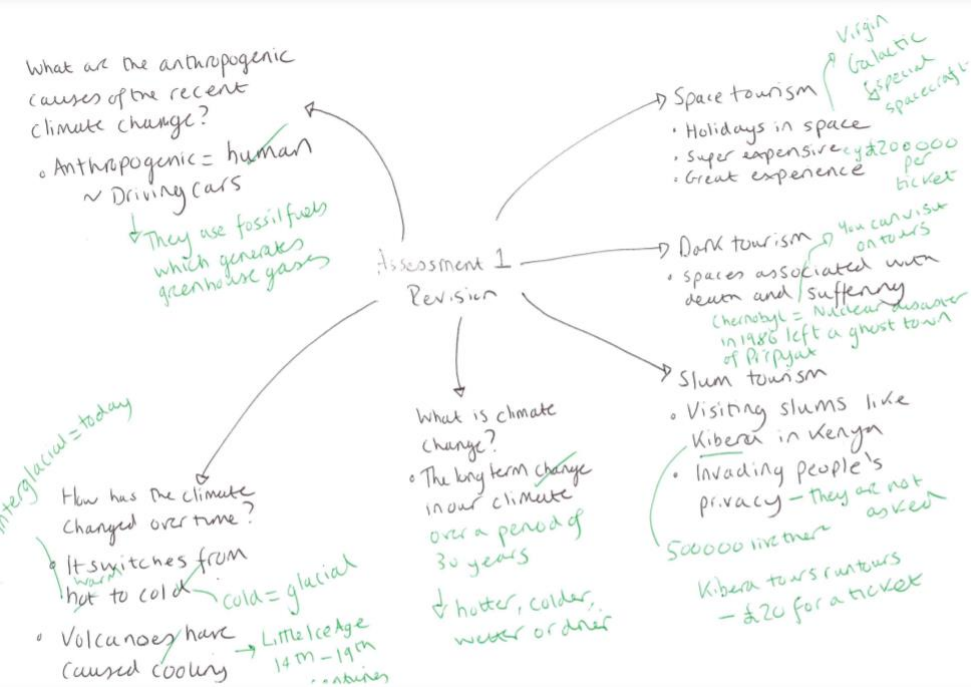 Assessment 1
Revision
What are the anthropogenic
causes of the recent
climate change?
• Anthropogenic = human
~ Driving cars
They use fossil fuels
which generates
greenhouse gases
Space tourism
Virgin
Galactic
special
spacecraft
• Holidays in space
• Super expensive eg £200000
per
ticket
• Great experience
Dark tourism
You can visit
on tours
• spaces associated with
death and suffering
Chernobyl = Nuclear disaster
in 1986 left a ghost town
of Pirpyat
Slum tourism
• Visiting slums like
Kibera in Kenya
• Invading people's
privacy – they are not
asked
500000 live there
Kibera tours run tours
– £20 for a ticket
What is climate
change?
• The long term change
in our climate
over a period of
30 years
hotter, colder,
wetter or drier
How has the climate
changed over time?
• It switches from
warm
hot to cold
cold = glacial
interglacial = today
• Volcanoes have
caused cooling
→ Little Ice Age
14th – 19th